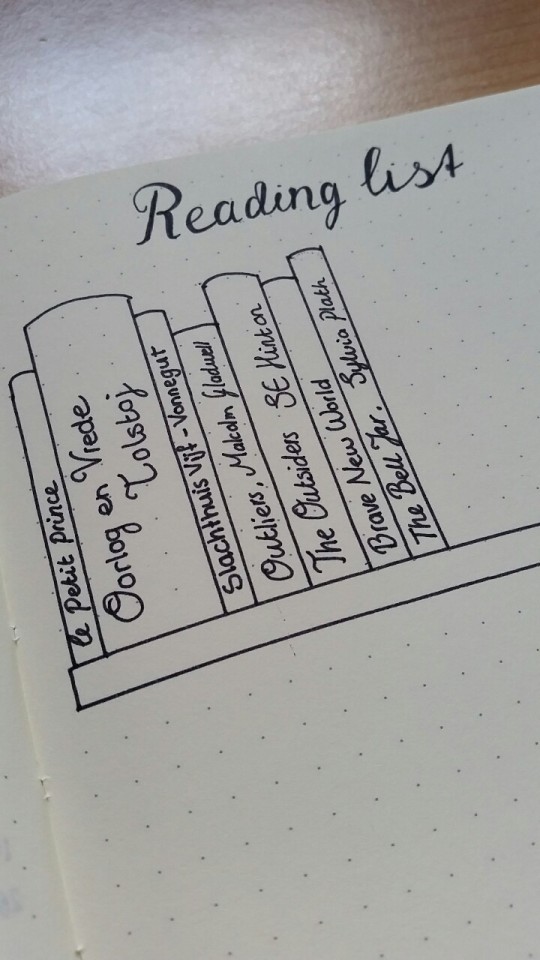 Reading list
le Petit Prince
Oorlog en Vrede
Tolstoj
Slachthuis Vijf - Vonnegut
Outliers, Malcolm Gladwell
The Outsiders SE Hinton
Brave New World
The Bell Jar. Sylvia Plath